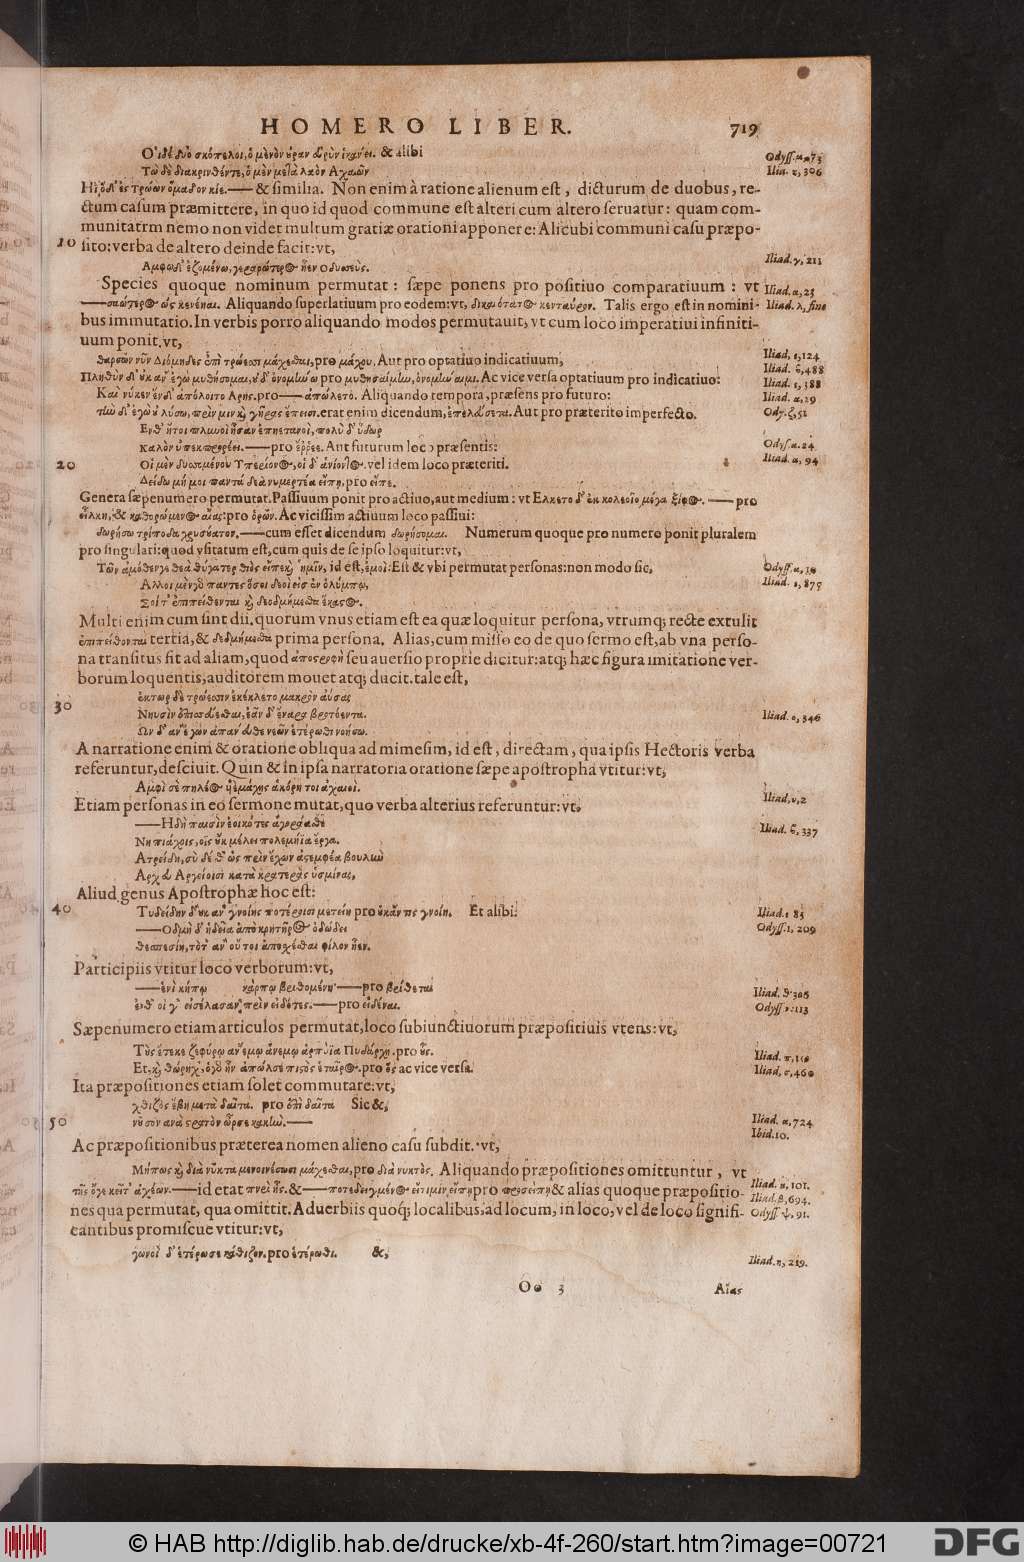 HOMERO LIBER. 719
Οἱ δὲ δύο σκόπελοι, ὁ μὲν & alibi Odyss. μ. 73
Τὼ δὲ διακρινθέντε, ὁ μὲν μετὰ λαὸν Ἀχαιῶν Ilia. 306
Ἤϊ, ὁ δ' ἐς Τρώων ὅμαδον κίε.—— & similia. Non enim à ratione alienum est, dicturum de duobus, re-
ctum casum præmittere, in quo id quod commune est alteri cum altero seruatur: quam com-
munitatrm nemo non videt multum gratiæ orationi apponere: Alicubi communi casu præpo-
10 sito: verba de altero deinde facit: vt,
Ἄμφω δ' ἑζομένω, γεραρώτερος ἦεν Ὀδυσσεύς. Iliad. γ, 211
Species quoque nominum permutat: sæpe ponens pro positiuo comparatiuum: vt Iliad. α, 23
——σαώτερος ὥς κε νέηαι. Aliquando superlatiuum pro eodem: vt, δικαιότατος κενταύρων. Talis ergo est in nomini- Iliad. λ, fine
bus immutatio. In verbis porro aliquando modos permutauit, vt cum loco imperatiui infiniti-
uum ponit. vt,
θαρσῶν νῦν Διόμηδες ἐπὶ τρώεσσι μάχεσθαι, pro μάχου. Aut pro optatiuo indicatiuum, Iliad. ε, 124
Πληθὺν δ' οὐκ ἂν ἐγὼ μυθήσομαι, οὐδ' ὀνομήνω pro μυθησαίμην, ὀνομήναιμι. Ac vice versa optatiuum pro indicatiuo: Iliad. β, 488
Καί νύ κεν ἔνθ' ἀπόλοιτο Ἄρης. pro—— ἀπώλετο. Aliquando tempora, præsens pro futuro: Iliad. ε, 388
τὴν δ' ἐγὼ οὐ λύσω, πρὶν μιν κ γῆρας ἔπεισι. erat enim dicendum, ἐπελεύσεται. Aut pro præterito imperfecto. Iliad. α, 29
Ἔνθ' ἤτοι πλυνοὶ ἦσαν ἐπηετανοί, πολὺ δ' ὕδωρ Ody. ζ, 51
καλὸν ὑπεκπρορέει.—— pro ἔρρεε. Aut futurum loco præsentis:
20 Οἱ μὲν δυσομένου Ὑπερίονος, οἱ δ' ἀνιόντος. vel idem loco præteriti. Odyss. α. 24
Δείδω μή μοι παντὰ δεὰ νημερτέα εἴπῃ. pro εἶπε. Iliad. α, 94
Genera sæpenumero permutat. Passiuum ponit pro actiuo, aut medium: vt Ἕλκετο δ' ἐκ κολεοῖο μέγα ξίφος. —— pro
εἷλκη, & καθορώμενος αἶας: pro ὁρῶν. Ac vicissim actiuum loco passiui:
δωρήσω τρίποδα χρυσούατον.—— cum esset dicendum δωρήσομαι. Numerum quoque pro numero ponit pluralem
pro singulari: quod vsitatum est, cum quis de se ipso loquitur: vt,
Τῶν ἁμόθεν γε θεὰ θύγατερ Διὸς εἰπὲ κ ἡμῖν, id est, ἐμοί: Est & vbi permutat personas: non modo sic, Odyss. α, 10
Ἄλλοι μὲν γὸ πάντες ὅσοι θεοὶ εἰσ' ἐν ὀλύμπῳ, Iliad. ε, 877
Σοί τ' ἐπιπείθονται κ δεδμήμεσθα ἕκαστος.
Multi enim cum sint dii, quorum vnus etiam est ea quæ loquitur persona, vtrumq; recte extulit
ἐπιπείθονται tertia, & δεδμήμεσθα prima persona. Alias, cum misso eo de quo sermo est, ab vna perso-
na transitus fit ad aliam, quod ἀποστροφὴ seu auersio proprie dicitur: atq; hæc figura imitatione ver-
borum loquentis, auditorem mouet atq; ducit. tale est,
ἕκτωρ δὲ τρώεσσιν ἐκέκλετο μακρὸν ἀύσας
30 Νηυσὶν ἐπισσεύεσθαι, ἐᾶν δ' ἔναρα βροτόεντα. Iliad. ο, 346
Ὃν δ' ἂν ἐγὼν ἀπάνευθε νεῶν ἑτέρωθι νοήσω.
A narratione enim & oratione obliqua ad mimesim, id est, directam, qua ipsis Hectoris verba
referuntur, desciuit. Quin & in ipsa narratoria oratione sæpe apostropha vtitur: vt,
Ἀμφὶ σὲ πηλέος υἱὲ μάχης ἀκόρητοι ἀχαιοί.
Etiam personas in eo sermone mutat, quo verba alterius referuntur: vt, Iliad, υ, 2
——Ἤδη παισὶν ἐοικότες ἀγοράασθε
Νηπιάχοις, οἷς οὔκ μέλει πολεμήϊα ἔργα. Iliad. β, 337
Ἀτρείδη, σὺ δέ θ' ὡς πρὶν ἔχων ἀστεμφέα βουλὴν
Ἄρχευ Ἀργείοισι κατὰ κρατερὰς ὑσμίνας,
Aliud genus Apostrophæ hoc est:
40 Τυδείδην δ' οὐκ ἂν γνοίης ποτέροισι μετείη pro οὐκ ἄν τις γνοίη. Et alibi: Iliad. ε 85
——Ὀδμὴ δ' ἡδεῖα ἀπὸ κρητῆρος ὀδώδει Odyss. ι, 209
θεσπεσίη, τότ' ἂν οὔ τοι ἀποχέσθαι φίλον ἦεν.
Participiis vtitur loco verborum: vt,
——ἐνὶ κήπῳ καρπῷ βριθομένη—— pro βρίθεται Iliad. θ. 306
ἔνθ' οἵ γ' εἰσέλασαν, πρὶν εἰδότες.—— pro εἰδέναι. Odyss ν. 113
Sæpenumero etiam articulos permutat, loco subiunctiuorum præpositiuis vtens: vt,
Τοὺς ἔτεκε ζεφύρῳ ἀνέμῳ ἀνέμῳ ἅρπυια Ποδάργη. pro οὕς. Iliad. π, 150
Et, κ θώρηχ', ὁ γὸ ἦν ἀπώλεσε πιστὸς ἑταῖρος. pro ὃς ac vice versa. Iliad, σ, 460
Ita præpositiones etiam solet commutare: vt,
χθιζὸς ἔβη μετὰ δαῖτα. pro ἐπὶ δαῖτα Sic &,
50 νοῦσον ἀνὰ στρατὸν ὦρσε κακὴν.—— Iliad. α, 724
Ac præpositionibus præterea nomen alieno casu subdit. vt, Ibid. 10.
Μήπως κ διὰ νύκτα μενοινήσωσι μάχεσθαι, pro διὰ νυκτός. Aliquando præpositiones omittuntur, vt
τῆς ὅγε κεῖτ' ἀχέων.—— id etat περὶ ἧς. &—— ποτιδέγμενος εἴ τι μιν εἴπῃ pro προσείπῃ & alias quoque præpositio- Iliad. 101.
nes qua permutat, qua omittit. Aduerbiis quoq; localibus, ad locum, in loco, vel de loco signifi- Iliad. β, 694. Odyss. ψ. 91.
cantibus promiscue vtitur: vt,
δ' ἑτέρωσε κάθιζον. pro ἑτέρωθι. &, Iliad. η, 219.
Oo 3 Αἴας
© HAB http://diglib.hab.de/drucke/xb-4f-260/start.htm?image=00721 DFG